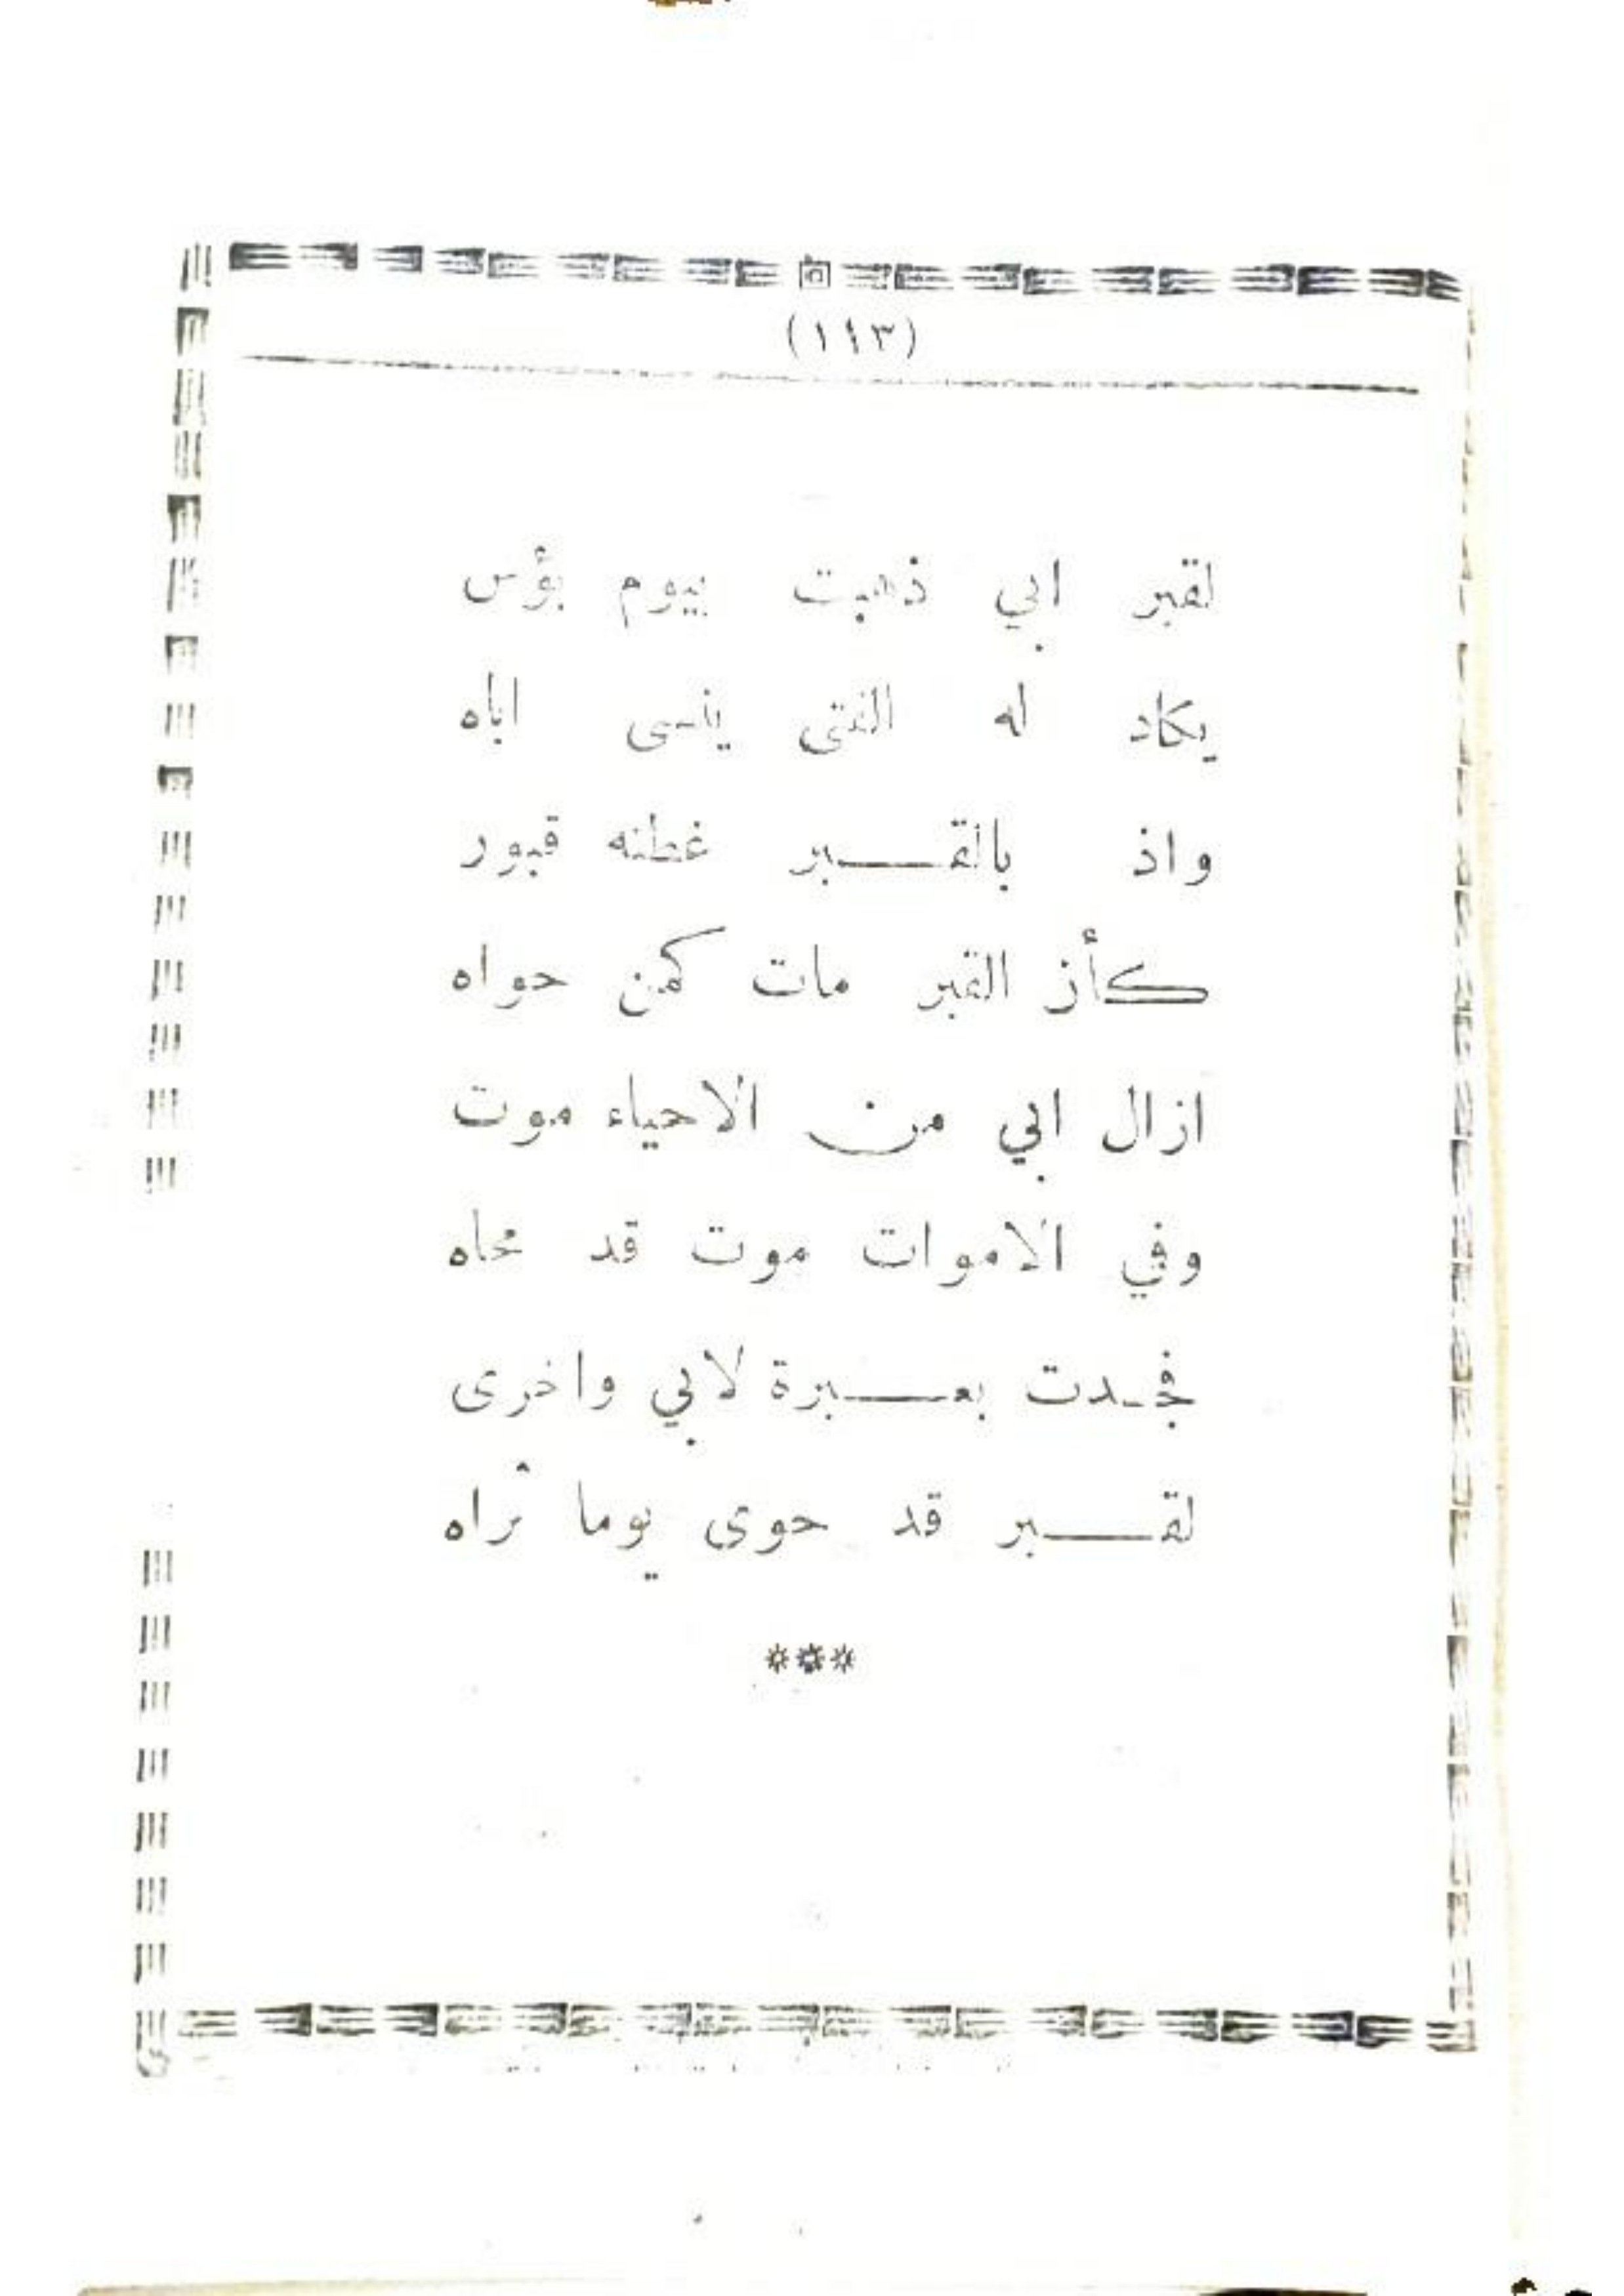 (١١٣)
لقبر ابي ذهبت بيوم بؤس
يكاد له الفتى ينسى اباه
واذ بالقبر غطته قبور
كأن القبر مات كمن حواه
ازال ابي من الاحياء موت
وفي الاموات موت قد محاه
فجدت بعبرة لابي واخرى
لقبر قد حوى يوما ثراه
***